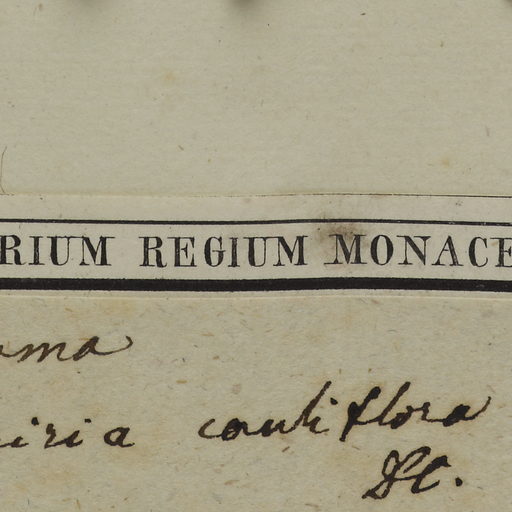 RIUM REGIUM MONACE
ama
iria cauliflora
DC.